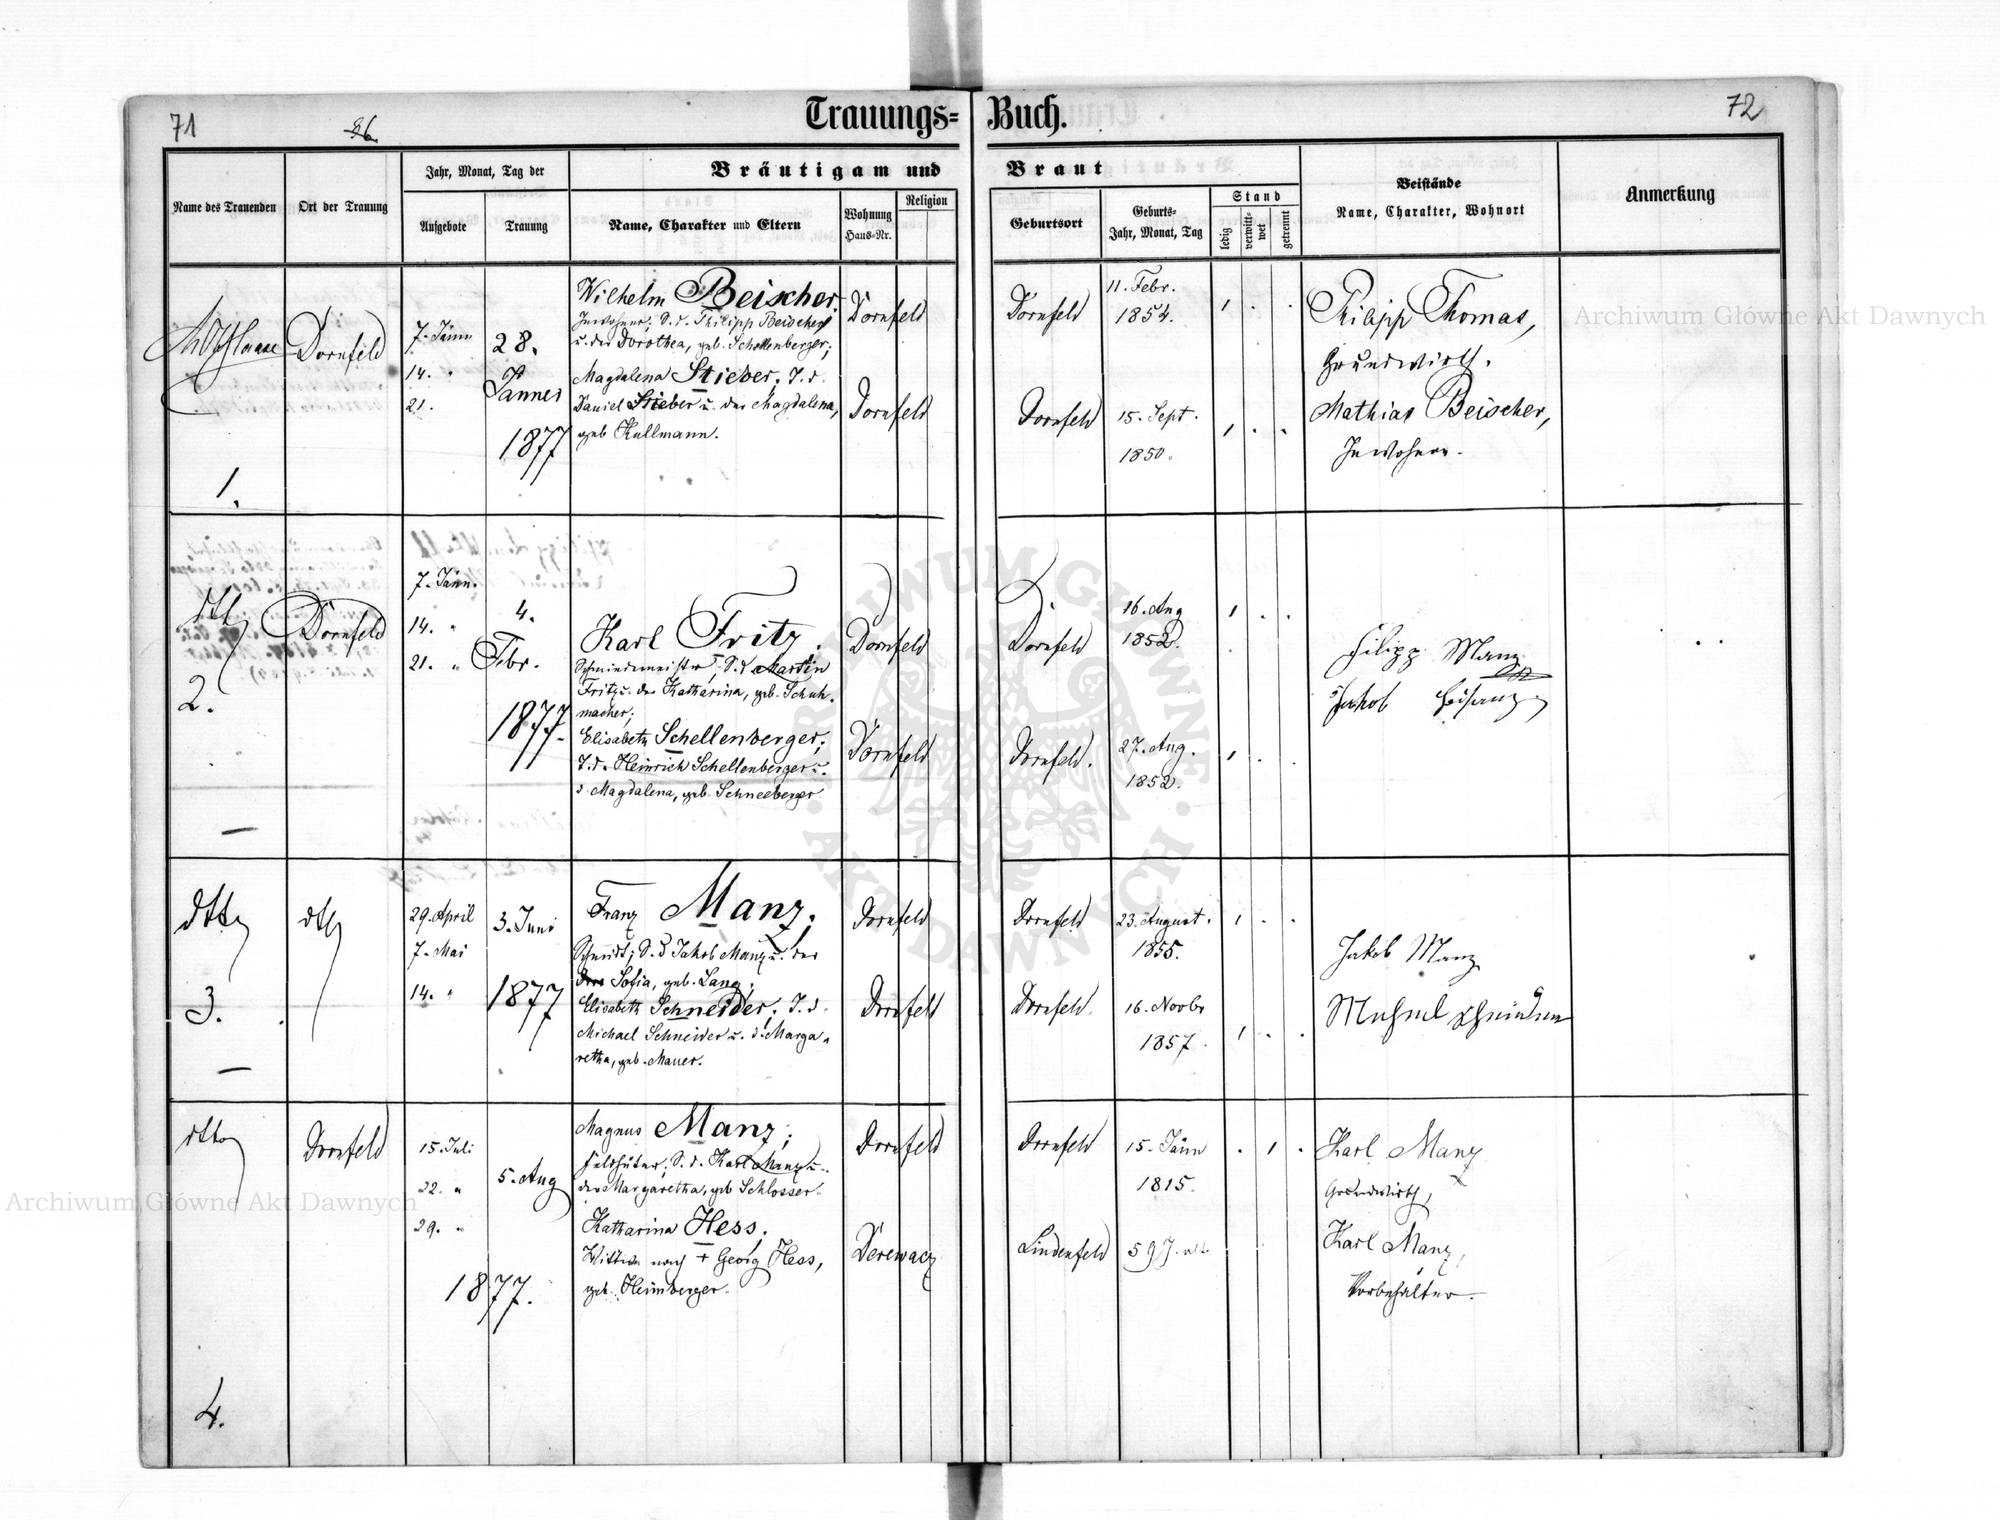 71
86
Trauungs=Buch.
72
Name des Trauenden
Ort der Trauung
Jahr, Monat, Tag der
Aufgebote
Trauung
Bräutigam und Braut
Name, Charakter und Eltern
Wohnung
Haus-Nr.
Religion
Geburtsort
Geburts-
Jahr, Monat, Tag
Stand
ledig
verwitt-
wet
getrennt
Beistände
Name, Charakter, Wohnort
Anmerkung
1.
Dornfeld
7. Jänn
14. "
21.
28.
Jänner
1877
Wilhelm Beischer,
Inwohner; S. d. Philipp Beischer
u. der Dorothea, geb. Schellenberger;
Magdalena Stieber; T. d.
Daniel Stieber u. der Magdalena,
geb Kullmann.
Dornfeld
Dornfeld
Dornfeld
11. Febr.
1854.
Dornfeld
15. Sept.
1850.
Philipp Thomas,
Grundwirth.
Mathias Beischer,
Inwohner.
dtto
2.
Dornfeld
7. Jänn.
14. "
21. "
4.
Febr.
1877.
Karl Fritz.
Schmiedemeister, S. d Martin
Fritz u. der Katharina, geb. Schuh-
macher;
Elisabeth Schellenberger;
T. d. Heinrich Schellenberger u.
d. Magdalena, geb. Schneeberger
Dornfeld
Dornfeld
Dornfeld
16. Aug
1852.
Dornfeld.
27. Aug.
1852.
Filipp Manz
Jakob
dtto
3.
dtto
29. April
7. Mai
14. "
3. Juni
1877
Franz Manz;
Schmidt; S. d Jakob Manz u. der
Sofia, geb. Lang;
Elisabeth Schneider; T. d.
Michael Schneider u. d. Marga-
retha, geb. Mauer.
Dornfeld
Dornfeld
Dornfeld
23. August.
1855.
Dornfeld.
16. Novbr
1857.
Jakob Manz
dtto
4.
Dornfeld
15. Juli
22. "
29. "
5. Aug
1877.
Magnus Manz;
Feldhüter; S. d. Karl Manz u.
der Margaretha, geb Schlosser.
Katharina Hess.
Wittwe nach + Georg Hess,
geb. Heimberger.
Dornfeld
Derewacz
Dornfeld
15. Jänn
1815.
Lindenfeld
59 J. alt.
Karl Manz
Grundwirth,
Karl Manz,
Vorbehälter.
Archiwum Główne Akt Dawnych
Archiwum Główne Akt Dawnych
ARCHIWUM GŁÓWNE · AKT DAWNYCH ·